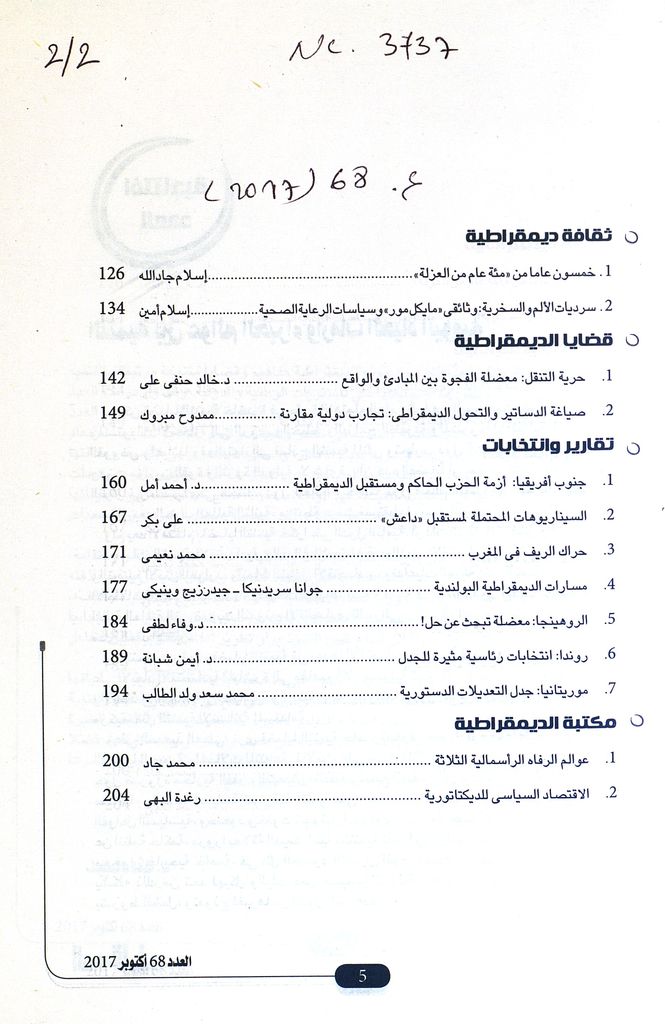 2/2
Nc. 3737
ع. 68 (2017)
ثقافة ديمقراطية
1. خمسون عاما من «مئة عام من العزلة»......................إسلام جاد الله 126
2. سرديات الألم والسخرية: وثائقى «مايكل مور» وسياسات الرعاية الصحية...............إسلام أمين 134
قضايا الديمقراطية
1. حرية التنقل: معضلة الفجوة بين المبادئ والواقع ................ د. خالد حنفى على 142
2. صياغة الدساتير والتحول الديمقراطى: تجارب دولية مقارنة ..............ممدوح مبروك 149
تقارير وانتخابات
1. جنوب أفريقيا: أزمة الحزب الحاكم ومستقبل الديمقراطية ................. د. أحمد أمل 160
2. السيناريوهات المحتملة لمستقبل «داعش» ........................... على بكر 167
3. حراك الريف فى المغرب ................................... محمد نعيمى 171
4. مسارات الديمقراطية البولندية ................ جوانا سريدنيكا ـ جيدرزيج وينيكى 177
5. الروهينجا: معضلة تبحث عن حل! ..............................د. وفاء لطفى 184
6. رواندا: انتخابات رئاسية مثيرة للجدل ..............................د. أيمن شبانة 189
7. موريتانيا: جدل التعديلات الدستورية .................... محمد سعد ولد الطالب 194
مكتبة الديمقراطية
1. عوالم الرفاه الرأسمالية الثلاثة ................................ محمد جاد 200
2. الاقتصاد السياسى للديكتاتورية ............................... رغدة البهى 204
العدد 68 أكتوبر 2017
5